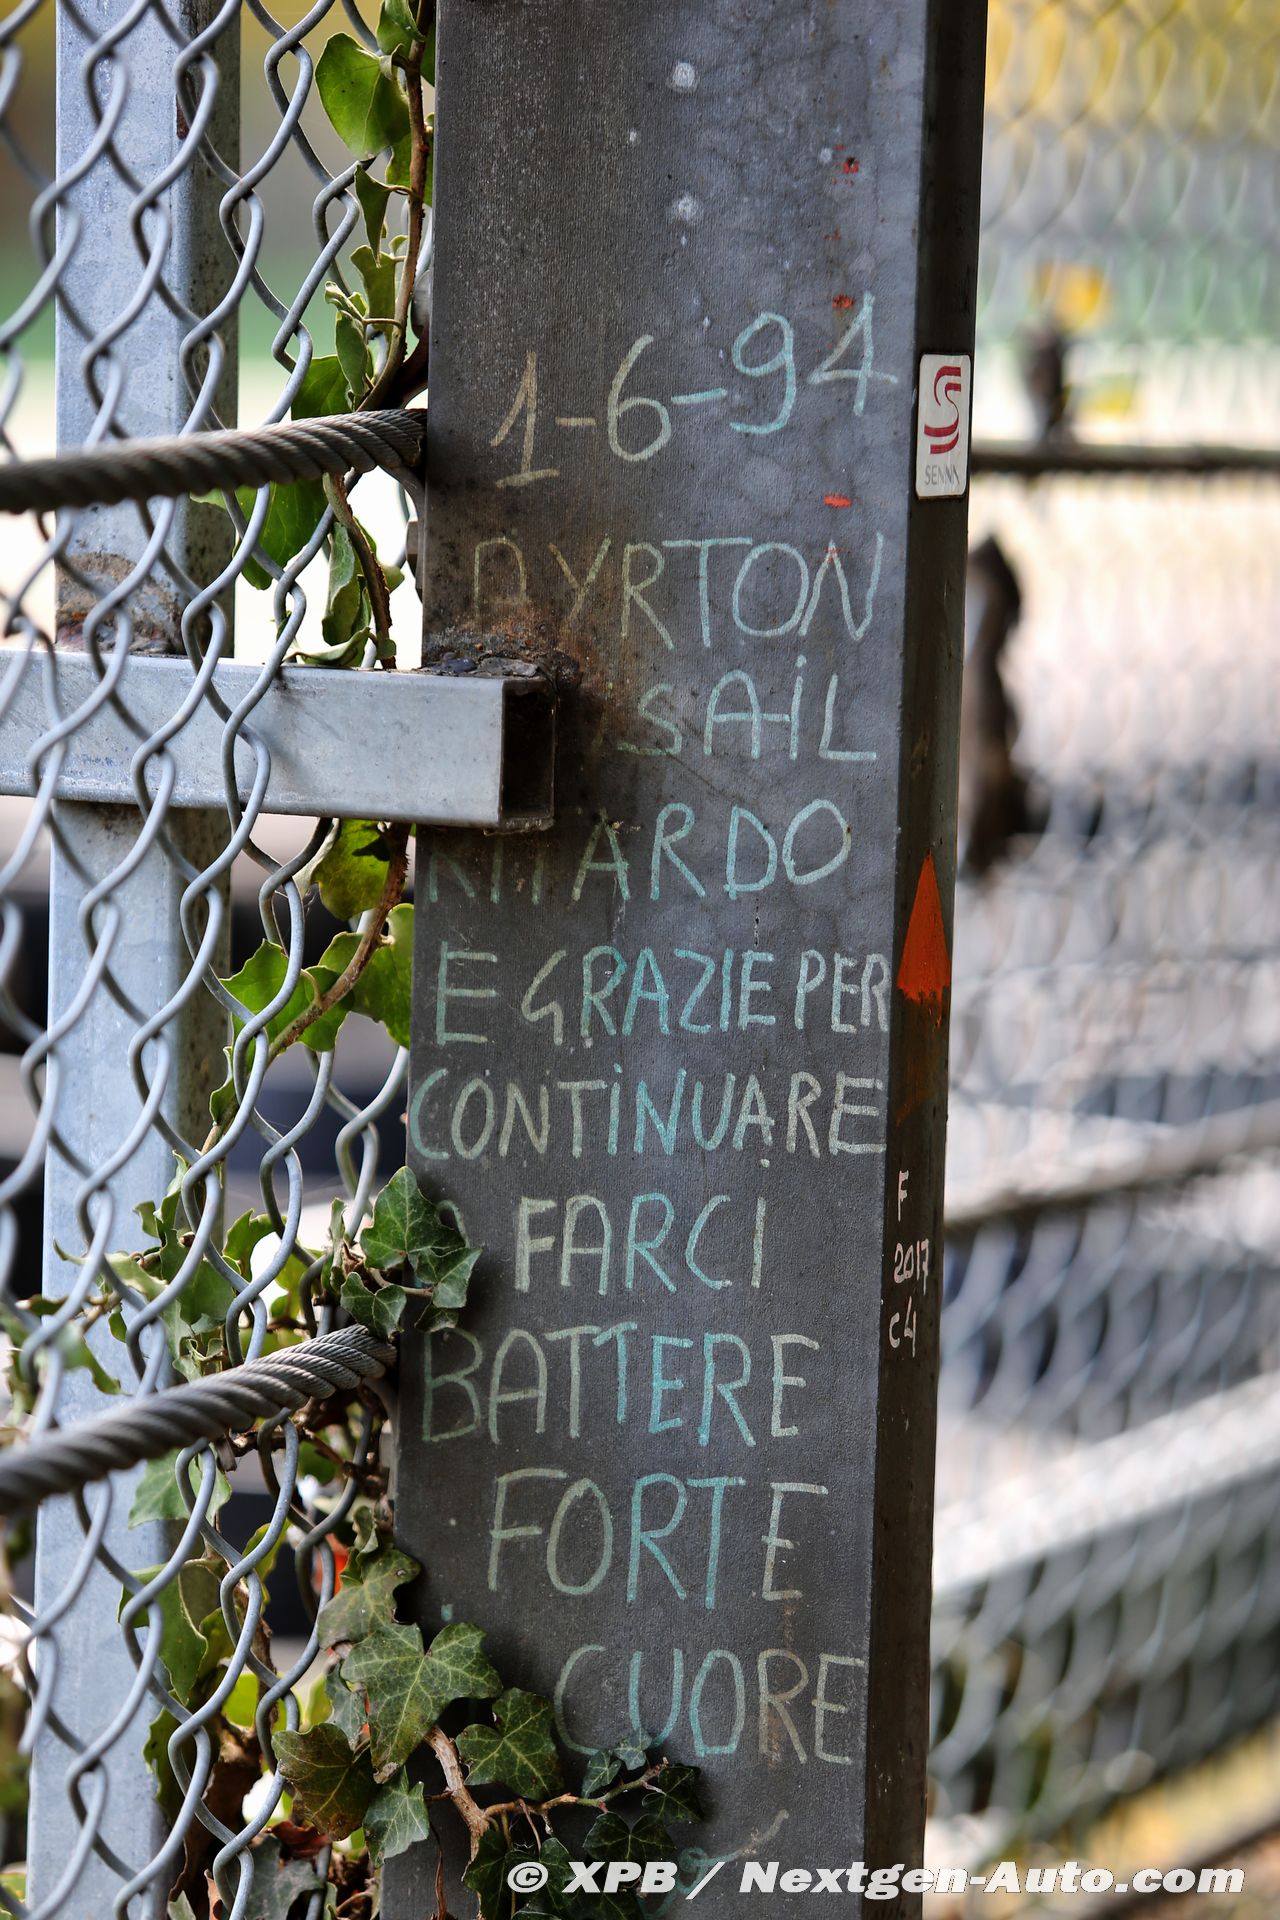 1-6-94
AYRTON
SAIL
RITARDO
E GRAZIE PER
CONTINUARE
A FARCI
BATTERE
FORTE
CUORE
SENNA
F
2017
C4
© XPB / Nextgen-Auto.com